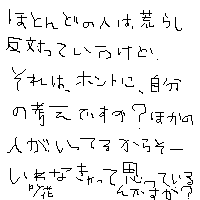 ほとんどの人は、荒らし
反対っていうけど、
それは、ホントに、自分
の考えですか？ほかの
人がいってるからそー
いわなきゃって思っている
んですか？